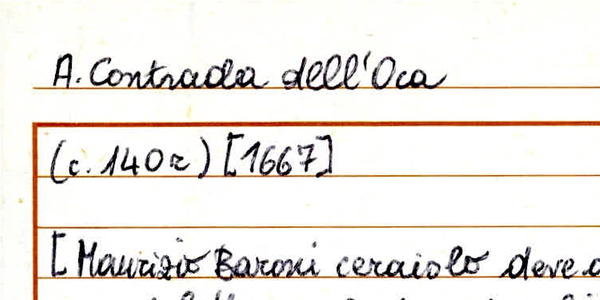 A. Contrada dell'Oca
(c. 140r) [1667]
[Maurizio Baroni ceraiolo deve